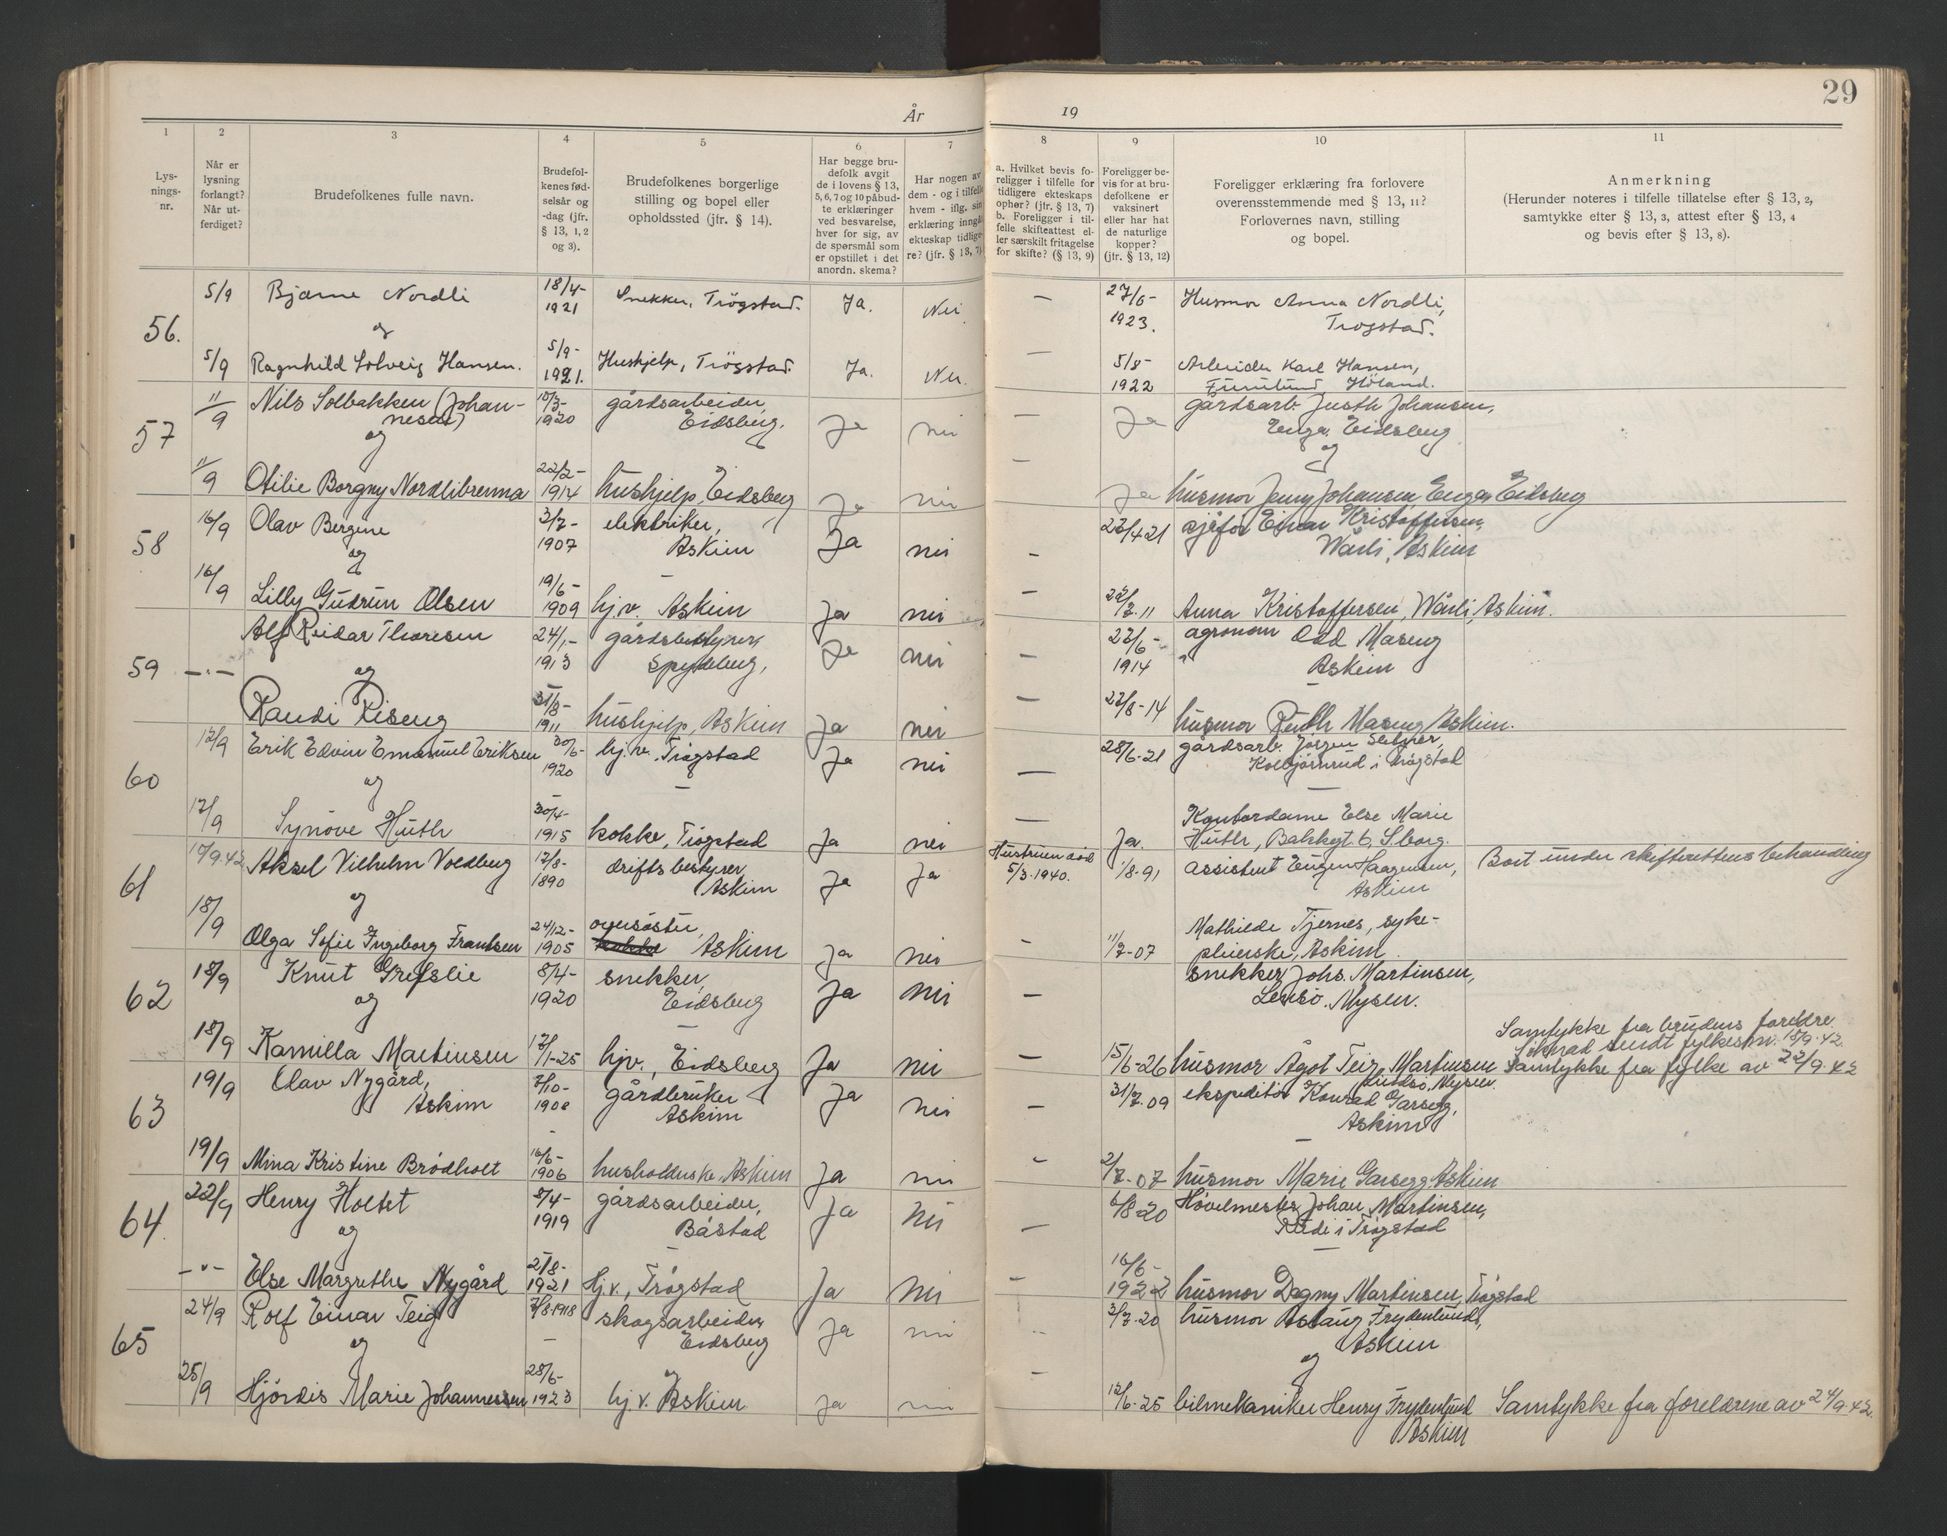 29
År
19
1
2
3
4
5
6
7
8
9
10
11
Lys-
nings-
nr.
Når er
lysning
forlangt?
Når ut-
ferdiget?
Brudefolkenes fulle navn.
Brudefol-
kenes fød-
selsår og
-dag (jfr.
§ 13, 1, 2
og 3).
Brudefolkenes borgerlige
stilling og bopel eller
opholdssted (jfr. § 14).
Har begge bru-
defolk avgit
de i lovens § 13,
5, 6, 7 og 10 påbud-
te erklæringer
ved besvarelse,
hver for sig, av
de spørsmål som
er opstillet i det
anordn. skema?
Har nogen av
dem - og i tilfelle
hvem - iflg. sin
erklæring inngått
ekteskap tidlige-
re? (jfr. § 13, 7)
a. Hvilket bevis fo-
religger i tilfelle for
tidligere ekteskaps
ophør? (jfr. § 13, 7)
b. Foreligger i til-
felle skifteattest el-
ler særskilt fritagelse
for skifte? (§ 13, 9)
Foreligger be-
vis for at bru-
defolkene er
vaksinert
eller har hat
de naturlige
kopper?
(jfr. § 13, 12)
Foreligger erklæring fra forlovere
overensstemmende med § 13, 11?
Forlovernes navn, stilling
og bopel.
Anmerkning
(Herunder noteres i tilfelle tillatelse efter § 13, 2,
samtykke etter § 13, 3, attest efter § 13, 4
og bevis efter § 13, 8).
56. 5/9 Bjarne Nordli 18/4-1921 Snekker, Trøgstad. Ja. Nei — 27/6-1923. Husmor Anna Nordli,
Trøgstad.
og
5/9 Ragnhild Solveig Hansen. 5/9-1921. Hushjelp, Trøgstad. Ja. Nei. — 5/8-1922 Arbeider Karl Hansen,
Furulund Høland.
57 11/9 Nils Solbakken (Johan-
nesen) 1920 gårdsarbeider,
Eidsberg. Ja nei — Ja gårdsarb. Justh Johansen,
Enga, Eidsberg
og og
11/9 Otilie Borgny Nordlibrenna 22/2-1914 hushjelp, Eidsberg Ja nei — Ja husmor Jenny Johansen Enga, Eidsberg
58 16/9 Olav Bergene 3/7-1907 elektriker,
Askim Ja nei — 22/4-21 sjåfør Einar Kristoffersen,
Wårli, Askim
og
16/9 Lilly Gudrun Olsen 19/6-1909 hj.v. Askim Ja nei — 22/7-11 Anna Kristoffersen, Wårli, Askim.
59 —"— Alf Reidar Thoresen 24/1-1913 gårdsbestyrer,
Spydeberg, Ja nei — 22/6-1914 agronom Odd Maseng
Askim
og
Randi Riseng 31/8-1911 hushjelp, Askim Ja nei — 22/8-14 husmor Ruth Maseng Askim.
60 17/9 Erik Edvin Emanuel Eriksen 30/6-1920 hj.v. Trøgstad Ja nei — 28/6-21 gårdsarb. Jørgen Selmer,
Kolbjørnrud i Trøgstad
og
17/9 Synøve Huth 30/4-1915 kokke, Trøgstad Ja nei — Ja. Kontordame Else Marie
Huth, Bakkegt 6, S.borg.
61 17/9.42 Aksel Vilhelm Voldberg 17/8-1890 driftsbestyrer,
Askim Ja Ja Hustruen død
5/3-1940. 1/8-91 assistent Eugen Haagensen,
Askim Boet under skifterettens behandling
og
18/9 Olga Sofie Ingeborg Frantsen 24/12-1905 oversøster,
Askim Ja nei — 11/7-07 Mathilde Tjernes, syke-
pleierske, Askim
62 18/9 Knut Grefslie 8/4-1920 snekker,
Eidsberg Ja nei — snekker Johs. Martinsen,
Mysen.
og
18/9 Kamilla Martinsen 17/1-25 hjv., Eidsberg Ja nei — 15/6-26 husmor Ågot Teig Martinsen
Mysen. Samtykke fra brudens foreldre.
Søknad sendt fylkesm. 15/9.42.
Samtykke fra fylke av 22/9.42
63 19/9 Olav Nygård,
Askim 7/10-1908 gårdbruker
Askim Ja nei — 31/7-09 ekspeditør Konrad Garsegg,
Askim
19/9 Mina Kristine Brødholt 16/6-1906 husholderske, Askim Ja nei — 2/7-07 husmor Marie Garsegg Askim
64. 22/9 Henry Holtet 8/4-1919 gårdsarbeider,
Båstad Ja nei — 6/8-20 Høvelmester Johan Martinsen,
Rudi i Trøgstad
og
—"— Else Margrethe Nygård 21/8-1921 Hj.v., Trøgstad Ja nei — 16/6-1922 husmor Dagny Martinsen, Trøgstad
65 24/9 Rolf Einar Teig 7/8-1918 skogsarbeider
Eidsberg Ja nei — 3/7-20 husmor Aslaug Frydenlund,
Askim
og og
25/9 Hjørdis Marie Johannessen 28/6-1923 hj.v. Askim Ja nei — 12/6-25 bilmekaniker Henry Frydenlund
Askim Samtykke fra foreldrene av 24/9.42.